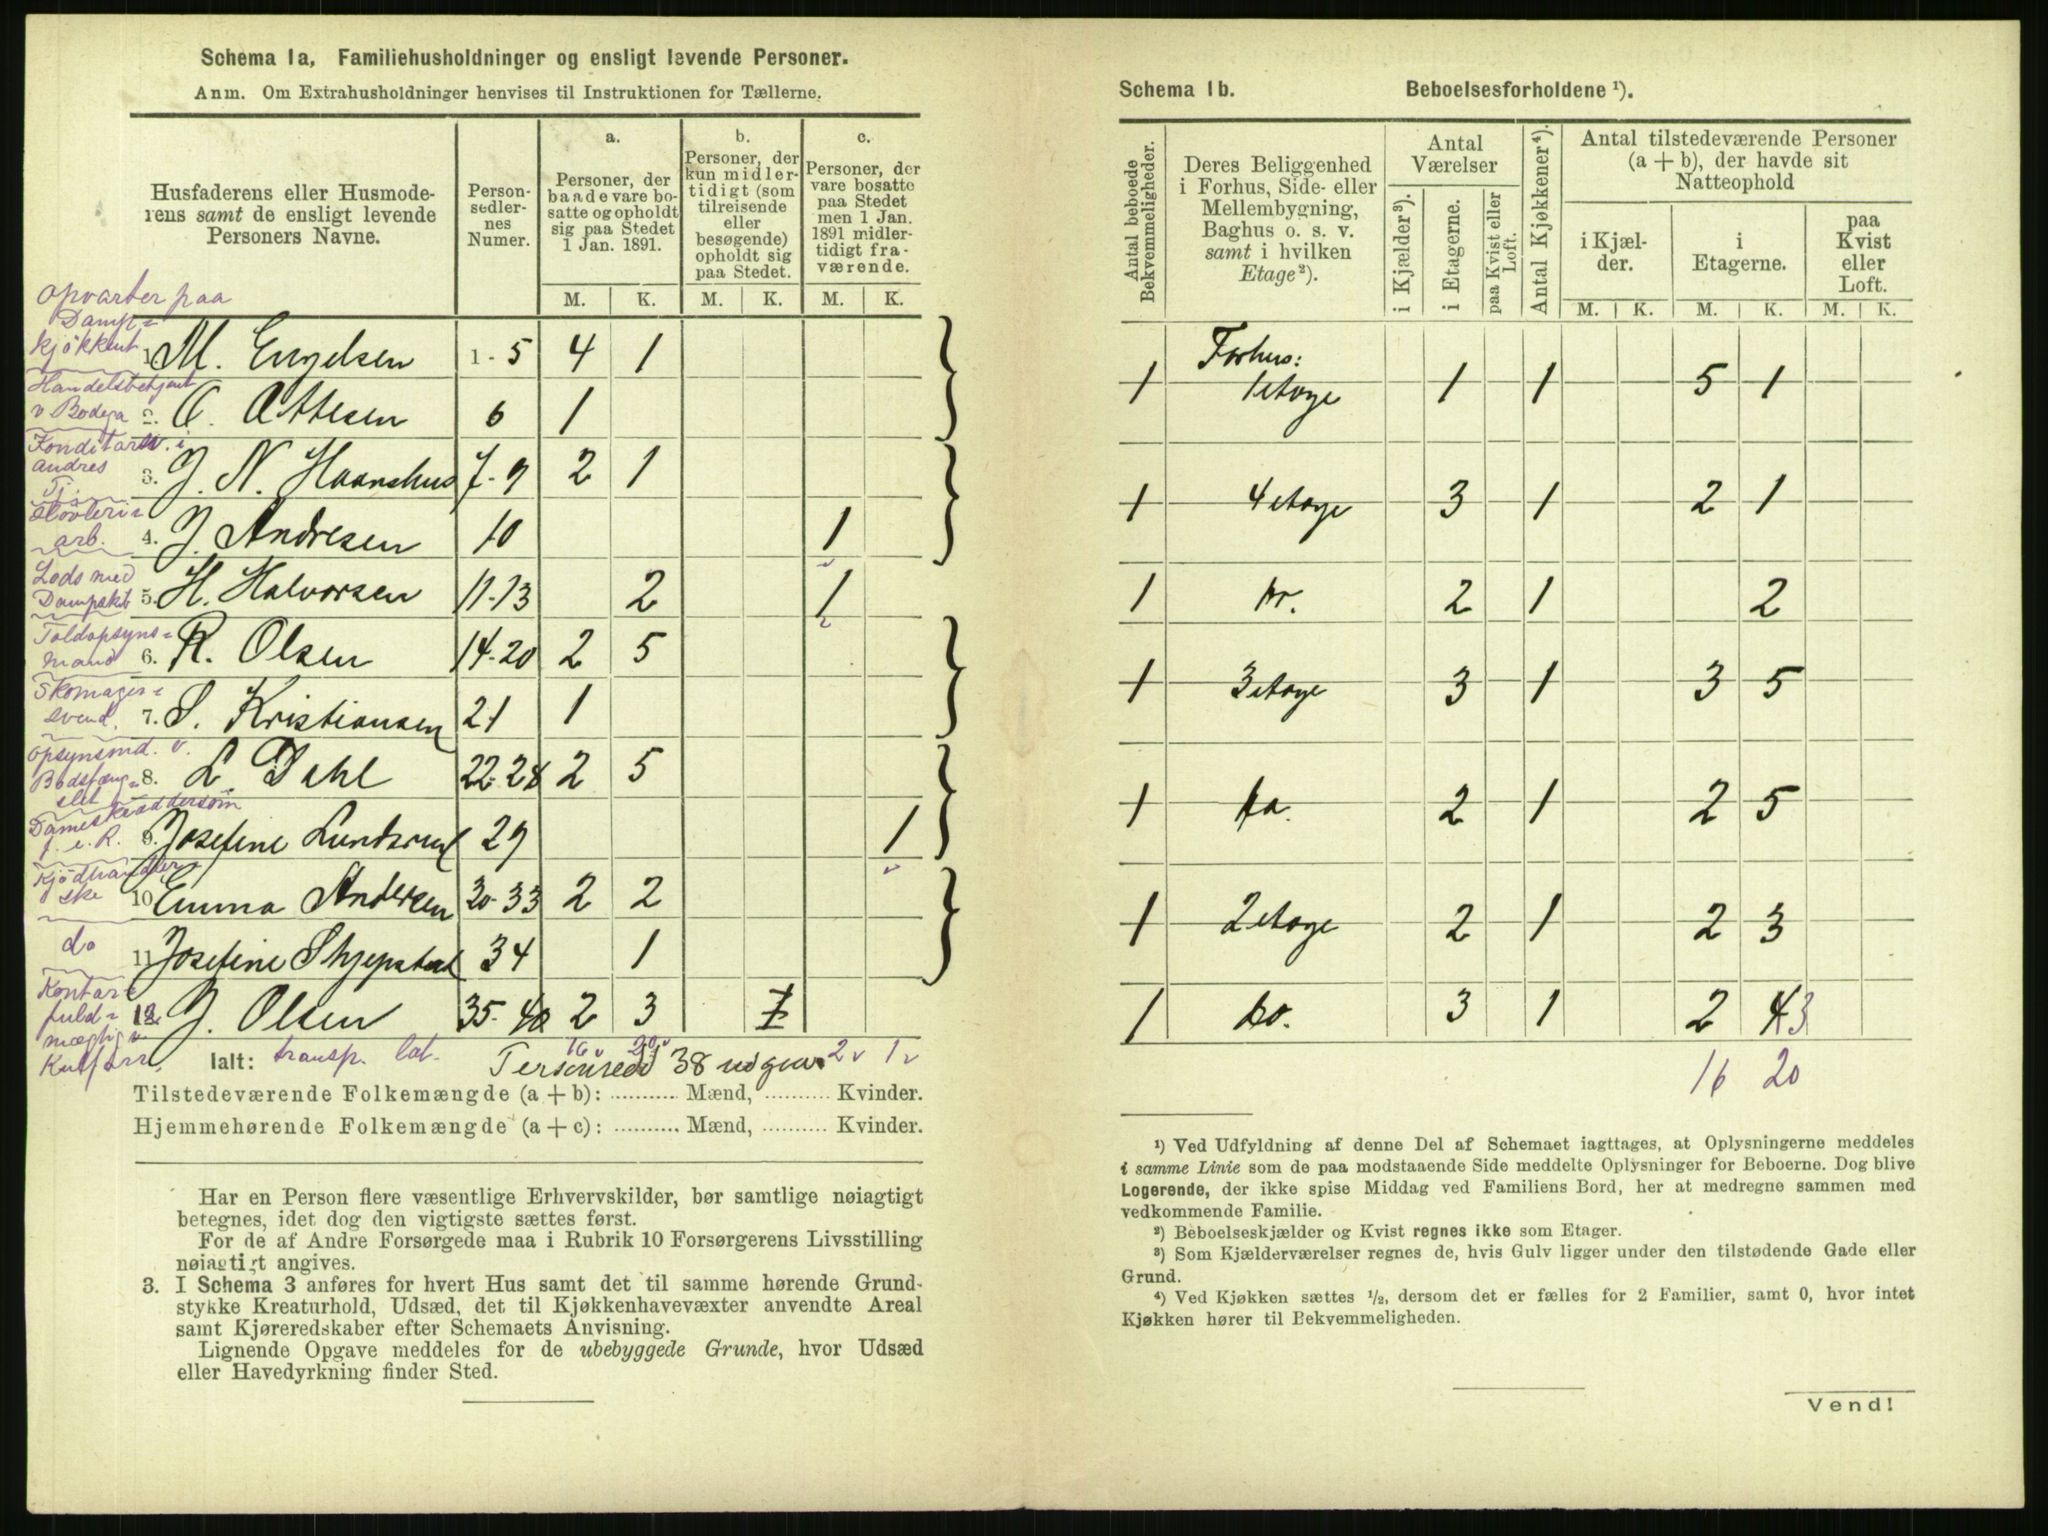 Schema 1a, Familiehusholdninger og ensligt levende Personer.
Anm. Om Extrahusholdninger henvises til Instruktionen for Tællerne.
Husfaderens eller Husmode-
rens samt de ensligt levende
Personers Navne.
Person-
sedler-
nes
Numer.
a.
Personer, der
baade vare bo-
satte og opholdt
sig paa Stedet
1 Jan. 1891.
b.
Personer, der
kun midler-
tidigt (som
tilreisende
eller
besøgende)
opholdt sig
paa Stedet.
c.
Personer, der
vare bosatte
paa Stedet
men 1 Jan.
1891 midler-
tidigt fra-
værende.
M. K. M. K. M. K.
Opvarter paa
Damp=
kjøkkent
1. M. Engelsen 1-5 4 1
Handelsbetjent
v Bodega
2. O. Attesen 6 1
i
andres
Tj.
3. J. N. Haanshus 7-9 2 1
Støvleri=
arb.
4. J. Andresen 10 1
Lods med
Dampskib
5. H. Halvorsen 11-13 2 1
Toldopsyns=
mand
6. R. Olsen 14-20 2 5
Skomager=
svend.
7. S. Kristiansen 21 1
Opsynsmd. v.
Bodsfæng=
slet
8. L. Dehl 22-28 2 5
Dameskræddersom
f. e. R.
9. Josefine Lundsrud 29 1
Kjødhandler
ske
10 Emma Andersen 30-33 2 2
do
11 Josefine Skjepstad 34 1
Kontor=
fuld=
mægtig v.
12 J. Olsen 35-40 2 3 1
Ialt: transp. lat. 16 v 20 v 2 v 1 v
38 udgaar
Tilstedeværende Folkemængde (a + b): .......... Mænd, .......... Kvinder.
Hjemmehørende Folkemængde (a + c): .......... Mænd, .......... Kvinder.
Har en Person flere væsentlige Erhvervskilder, bør samtlige nøiagtigt
betegnes, idet dog den vigtigste sættes først.
For de af Andre Forsørgede maa i Rubrik 10 Forsørgerens Livsstilling
nøiagtigt angives.
3. I Schema 3 anføres for hvert Hus samt det til samme hørende Grund-
stykke Kreaturhold, Udsæd, det til Kjøkkenhavevæxter anvendte Areal
samt Kjøreredskaber efter Schemaets Anvisning.
Lignende Opgave meddeles for de ubebyggede Grunde, hvor Udsæd
eller Havedyrkning finder Sted.
Schema 1b. Beboelsesforholdene ¹).
Antal beboede
Bekvemmeligheder.
Deres Beliggenhed
i Forhus, Side- eller
Mellembygning,
Baghus o. s. v.
samt i hvilken
Etage²).
Antal
Værelser
i Kjælder³).
i Etagerne.
paa Kvist eller
Loft.
Antal Kjøkkener⁴).
Antal tilstedeværende Personer
(a + b), der havde sit
Natteophold
i Kjæl-
der.
i
Etagerne.
paa
Kvist
eller
Loft.
M. K. M. K. M. K.
Forhus:
1 1 etage 1 1 5 1
1 4 etage 3 1 2 1
1 do. 2 1 2
1 3 etage 3 1 3 5
1 do. 2 1 2 5
1 2 etage 2 1 2 3
1 do. 3 1 2 4 3
16 20
¹) Ved Udfyldning af denne Del af Schemaet iagttages, at Oplysningerne meddeles
i samme Linie som de paa modstaaende Side meddelte Oplysninger for Beboerne. Dog blive
Logerende, der ikke spise Middag ved Familiens Bord, her at medregne sammen med
vedkommende Familie.
²) Beboelseskjælder og Kvist regnes ikke som Etager.
³) Som Kjælderværelser regnes de, hvis Gulv ligger under den tilstødende Gade eller
Grund.
⁴) Ved Kjøkken sættes ½, dersom det er fælles for 2 Familier, samt 0, hvor intet
Kjøkken hører til Bekvemmeligheden.
Vend!